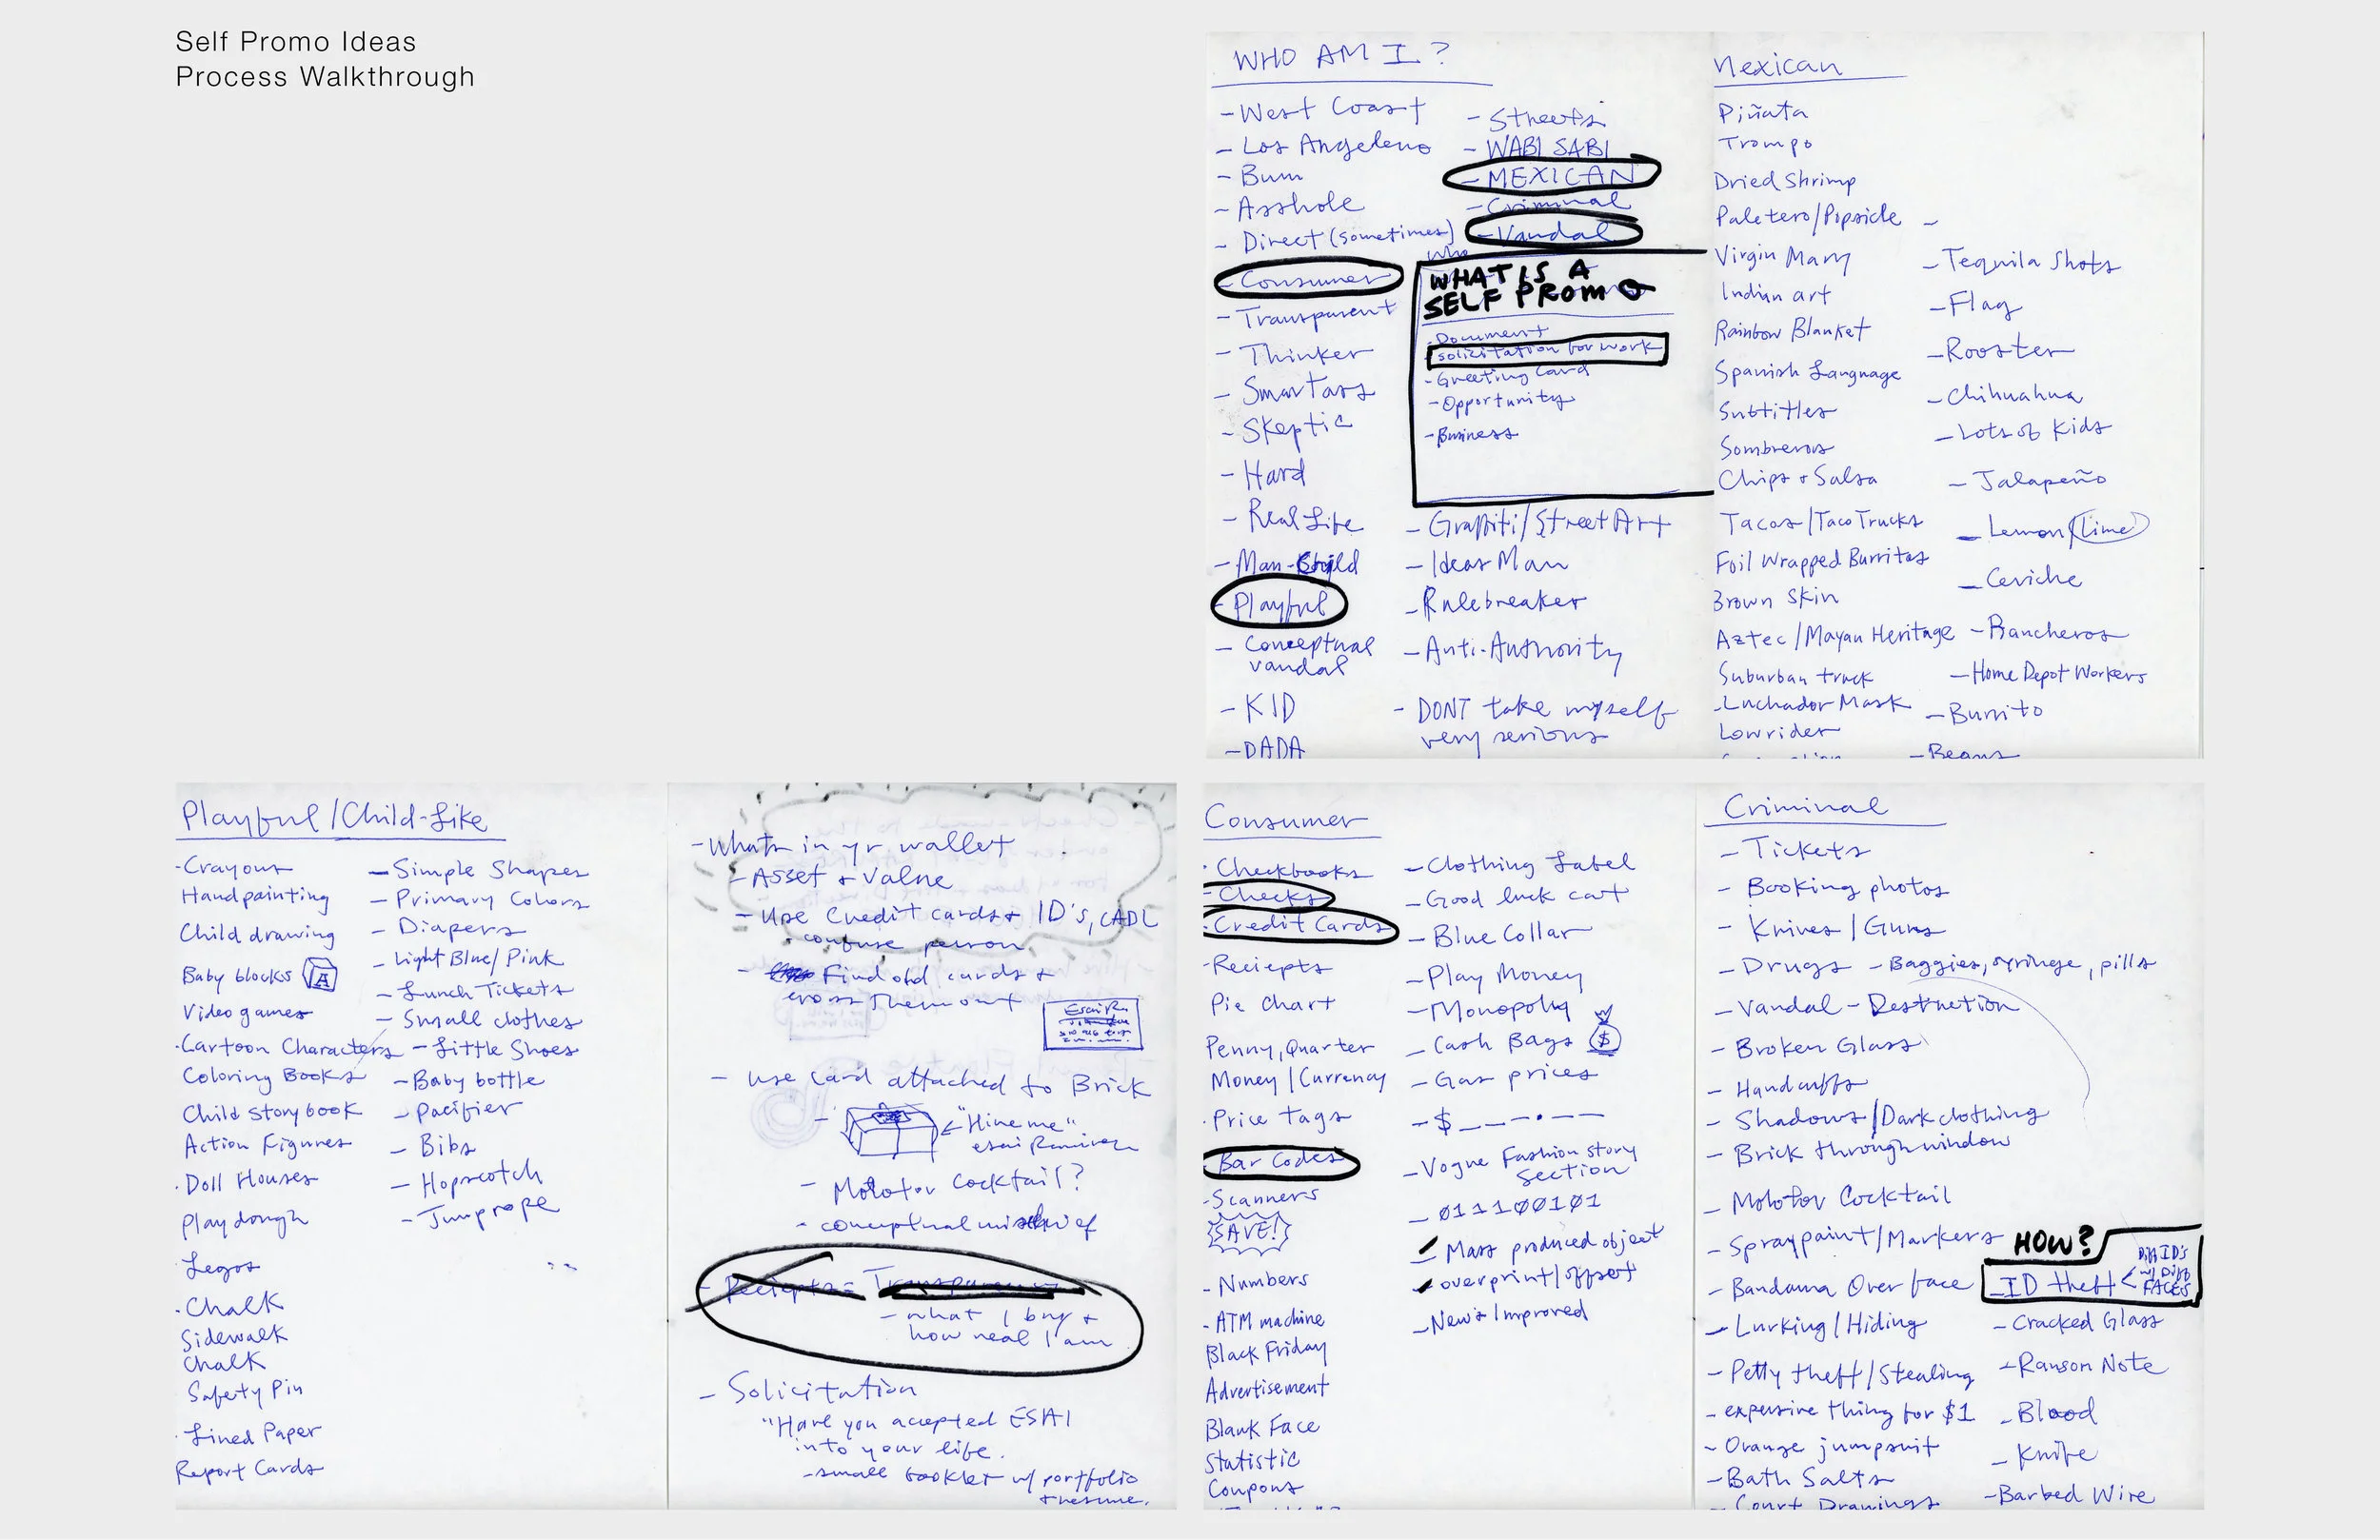 Self Promo Ideas
Process Walkthrough
WHO AM I?
- West Coast
- Los Angeleno
- Bum
- Asshole
- Direct (sometimes)
- Consumer
- Transparent
- Thinker
- Smartass
- Skeptic
- Hard
- Real Life
- Man-Child
- Playful
- Conceptual
vandal
- KID
- DADA
- Streets
- WABI SABI
- MEXICAN
- Criminal
- Vandal
Who
WHAT IS A
SELF PROMO
- Document
- Solicitation for work
- Greeting Card
- Opportunity
- Business
- Graffiti/Street Art
- Ideas Man
- Rulebreaker
- Anti-Authority
- DONT take myself
very serious
Mexican
Piñata
Trompo
Dried Shrimp
Paletero/Popsicle
Virgin Mary
Indian art
Rainbow Blanket
Spanish Language
Subtitles
Sombreros
Chips + Salsa
Tacos/Taco Trucks
Foil Wrapped Burritos
Brown Skin
Aztec/Mayan Heritage
Suburban truck
- Luchador Mask
Lowrider
-
- Tequila Shots
- Flag
- Rooster
- Chihuahua
- Lots of Kids
- Jalapeño
- Lemon (Lime)
- Ceviche
- Rancheros
- Home Depot Workers
- Burrito
- Beans
Playful/Child-Like
- Crayons
Handpainting
Child drawing
Baby blocks A
Video games
- Cartoon Characters
Coloring Books
Child storybook
Action Figures
- Doll Houses
Playdough
Legos
- Chalk
Sidewalk
Chalk
Safety Pin
- Lined Paper
Report Cards
- Simple Shapes
- Primary Colors
- Diapers
- Light Blue/Pink
- Lunch Tickets
- Small clothes
- Little Shoes
- Baby bottle
- Pacifier
- Bibs
- Hopscotch
- Jumprope
- Whats in yr wallet
- Asset + Value
- Use Credit cards + ID's, CADL
- confuse person
- Find old cards +
cross them out
Esai R.
- Use card attached to Brick
- "Hire me"
esai Ramirez
- Molotov Cocktail?
- conceptual mischief
- Reciepts = Transparent
- what I buy +
how real I am
- Solicitation
"Have you accepted ESAI
into your life.
- small booklet w/ portfolio
+ resume.
Consumer
- Checkbooks
- Checks
- Credit Cards
- Reciepts
Pie Chart
Penny, Quarter
Money/Currency
- Price Tags
- Bar Codes
- Scanners
SAVE!
- Numbers
- ATM machine
Black Friday
Advertisement
Blank Face
Statistic
Coupons
- Clothing Label
- Good luck cat
- Blue Collar
- Play Money
- Monopoly
- Cash Bags $
- Gas prices
- $ _ _ - . - -
- Vogue Fashion story
section
- 011100101
- Mass produced object
- overprint/offset
- New & Improved
Criminal
- Tickets
- Booking photos
- Knives/Guns
- Drugs - Baggies, syringe, pills
- Vandal - Destruction
- Broken Glass
- Handcuffs
- Shadows/Dark clothing
- Brick through window
- Molotov Cocktail
- Spraypaint/Markers
- Bandana Over face
- Lurking/Hiding
- Petty theft/Stealing
- expensive thing for $1
- Orange jumpsuit
- Bath Salts
- Court Drawings
HOW?
- ID theft < Diff ID's
w/ Diff
FACES
- Cracked Glass
- Ranson Note
- Blood
- Knife
- Barbed Wire